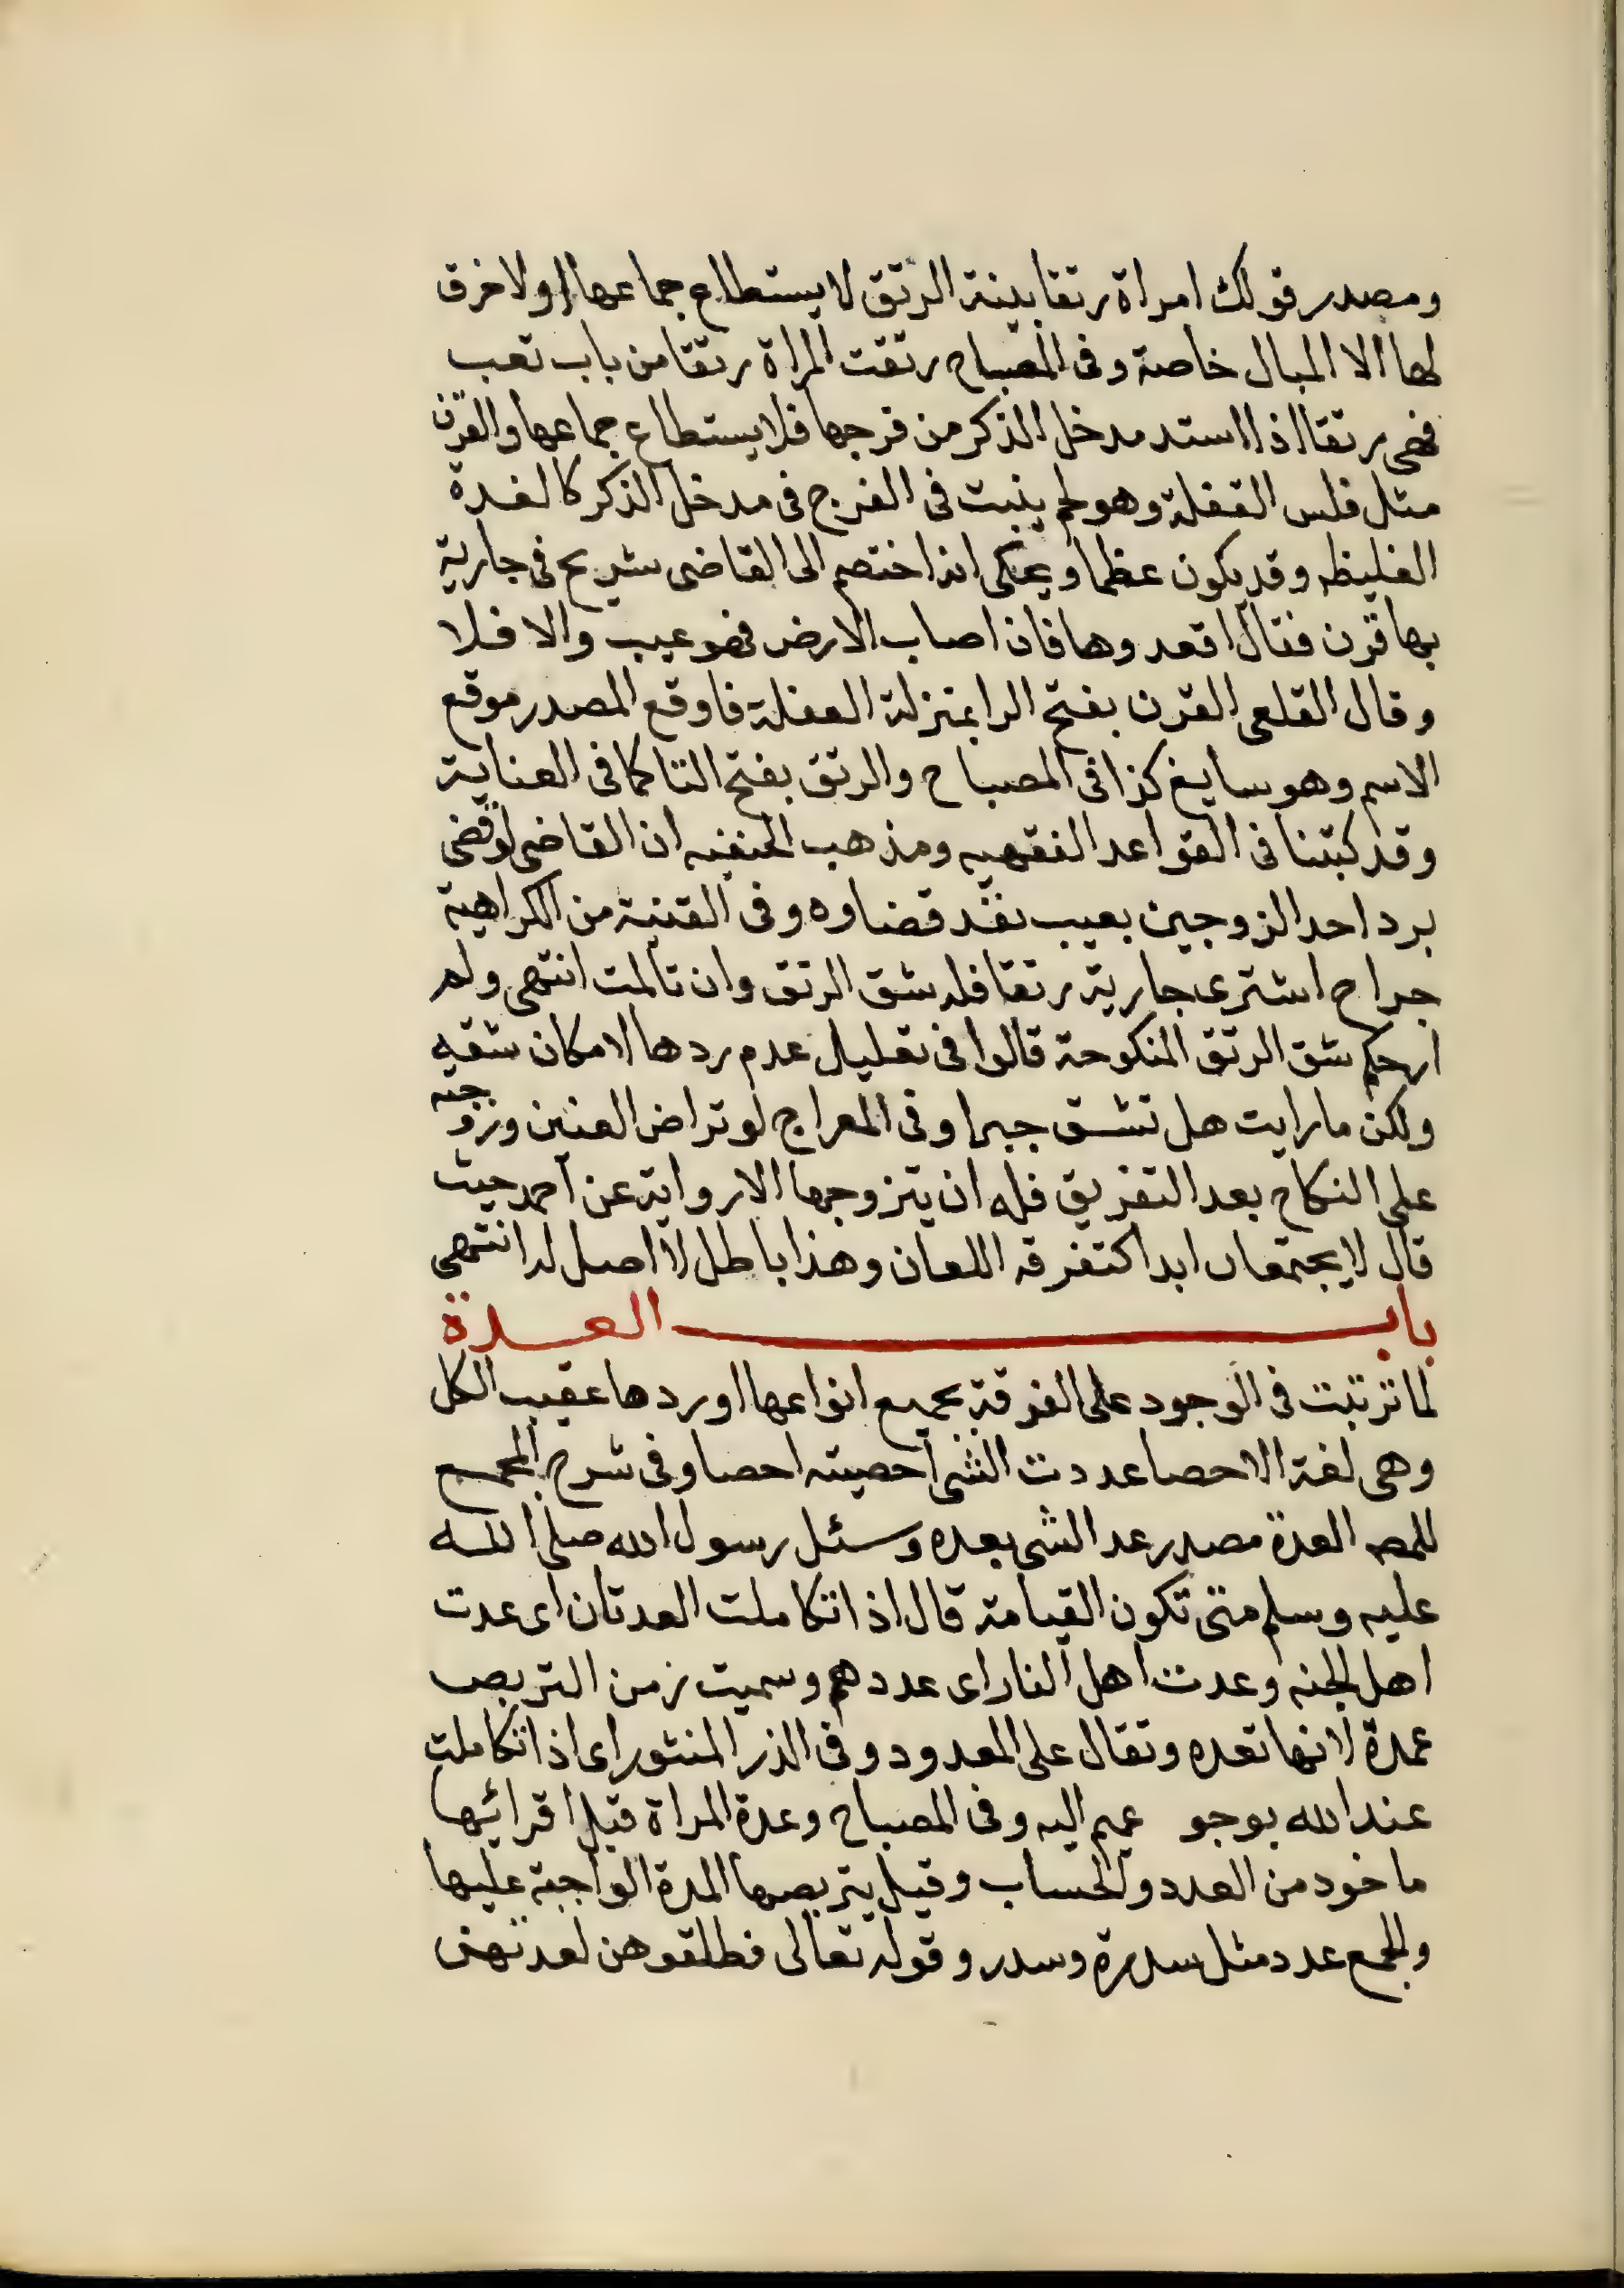 ومصدر قولك امراة رتقا بينة الرتق لا يستطاع جماعها او لا خرق
لها الا المبال خاصة وفى المصباح رتقت المراة رتقا من باب تعب
فهى رتقا اذا استد مدخل الذكر من فرجها فلا يستطاع جماعها والقرن
مثل فلس العفلة وهو لحم ينبت فى الفرج فى مدخل الذكر كالغدة
الغليظه وقد يكون عظما ويحكى انه اختصم الى القاضى شريح فى جارية
بها قرن فقال اقعدوها فان اصاب الارض فهو عيب والا فلا
وقال القلعى القرن بفتح الرا بمنزلة العفلة فاوقع المصدر موقع
الاسم وهو سايغ كذا فى المصباح والرتق بفتح التا كما فى العناية
وقد كتبنا فى القواعد الفقهيه ومذهب الحنفيه ان القاضى لو قضى
برد احد الزوجين بعيب نفذ قضاوه وفى القنية من الكراهية
جراح اشترى جارية رتقا فله شق الرتق وان تالمت انتهى ولم
ار حكم شق الرتق المنكوحة قالوا فى تعليل عدم ردها لامكان شقه
ولكن ما رايت هل تشق جبرا وفى المعراج لو تراض العنين وزوجته
على النكاح بعد التفريق فله ان يتزوجها الا رواية عن احمد حيث
قال لا يجتمعان ابدا كتفرقه اللعان وهذا باطل لا اصل له انتهى
باب العدة
لما ترتبت فى الوجود على الفرقة بجميع انواعها اوردها عقيب الكل
وهى لغة الاحصا عددت الشى احصيته احصا وفى شرح المجمع
للمصـ العدة مصدر عد الشى يعده وسئل رسول الله صلى الله
عليه وسلم متى تكون القيامة قال اذا تكاملت العدتان اى عدت
اهل الجنه وعدت اهل النار اى عددهم وسميت زمن التربص
عمدة لانها تعده وتقال على المعدود وفى الدر المنثور اى اذا تكاملت
عند الله بوجو عيم اليه وفى المصباح وعدة المراة قيل اقرائها
ماخود من العدد والحساب وقيل يتربصها المدة الواجبة عليها
والجمع عدد مثل سدرة وسدر وقوله تعالى فطلقوهن لعدتهن